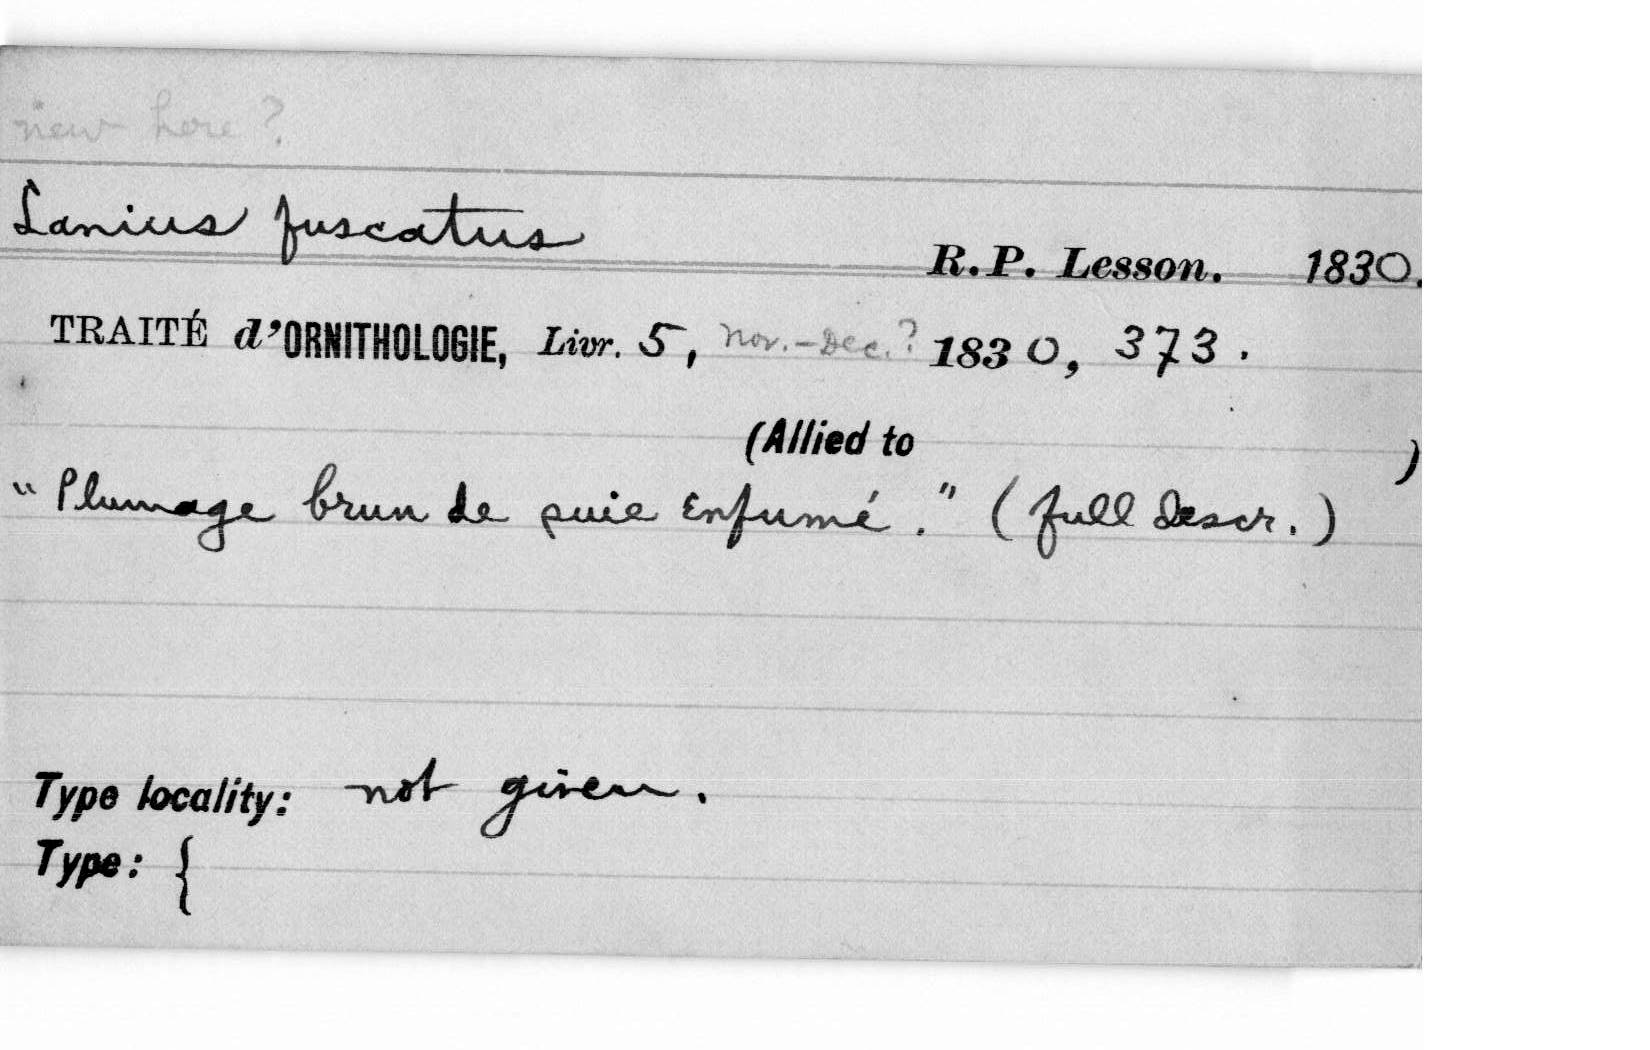 new here?
Lanius fuscatus
R.P. Lesson. 1830.
TRAITÉ d'ORNITHOLOGIE, Livr. 5, Nov.-Dec.? 1830, 373.
(Allied to )
"Plumage brun de suie enfumé." (full descr.)
Type locality: not given.
Type: {